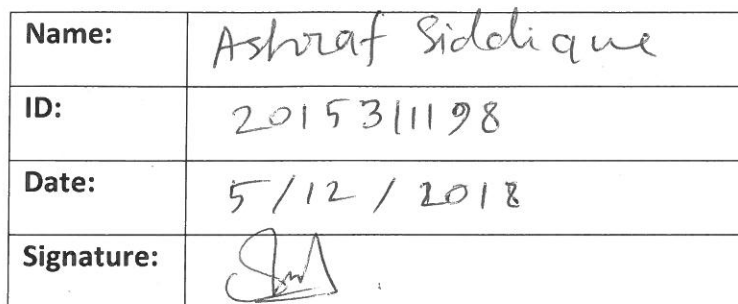 Name: Ashraf Siddique
ID: 2015311198
Date: 5/12/2018
Signature: